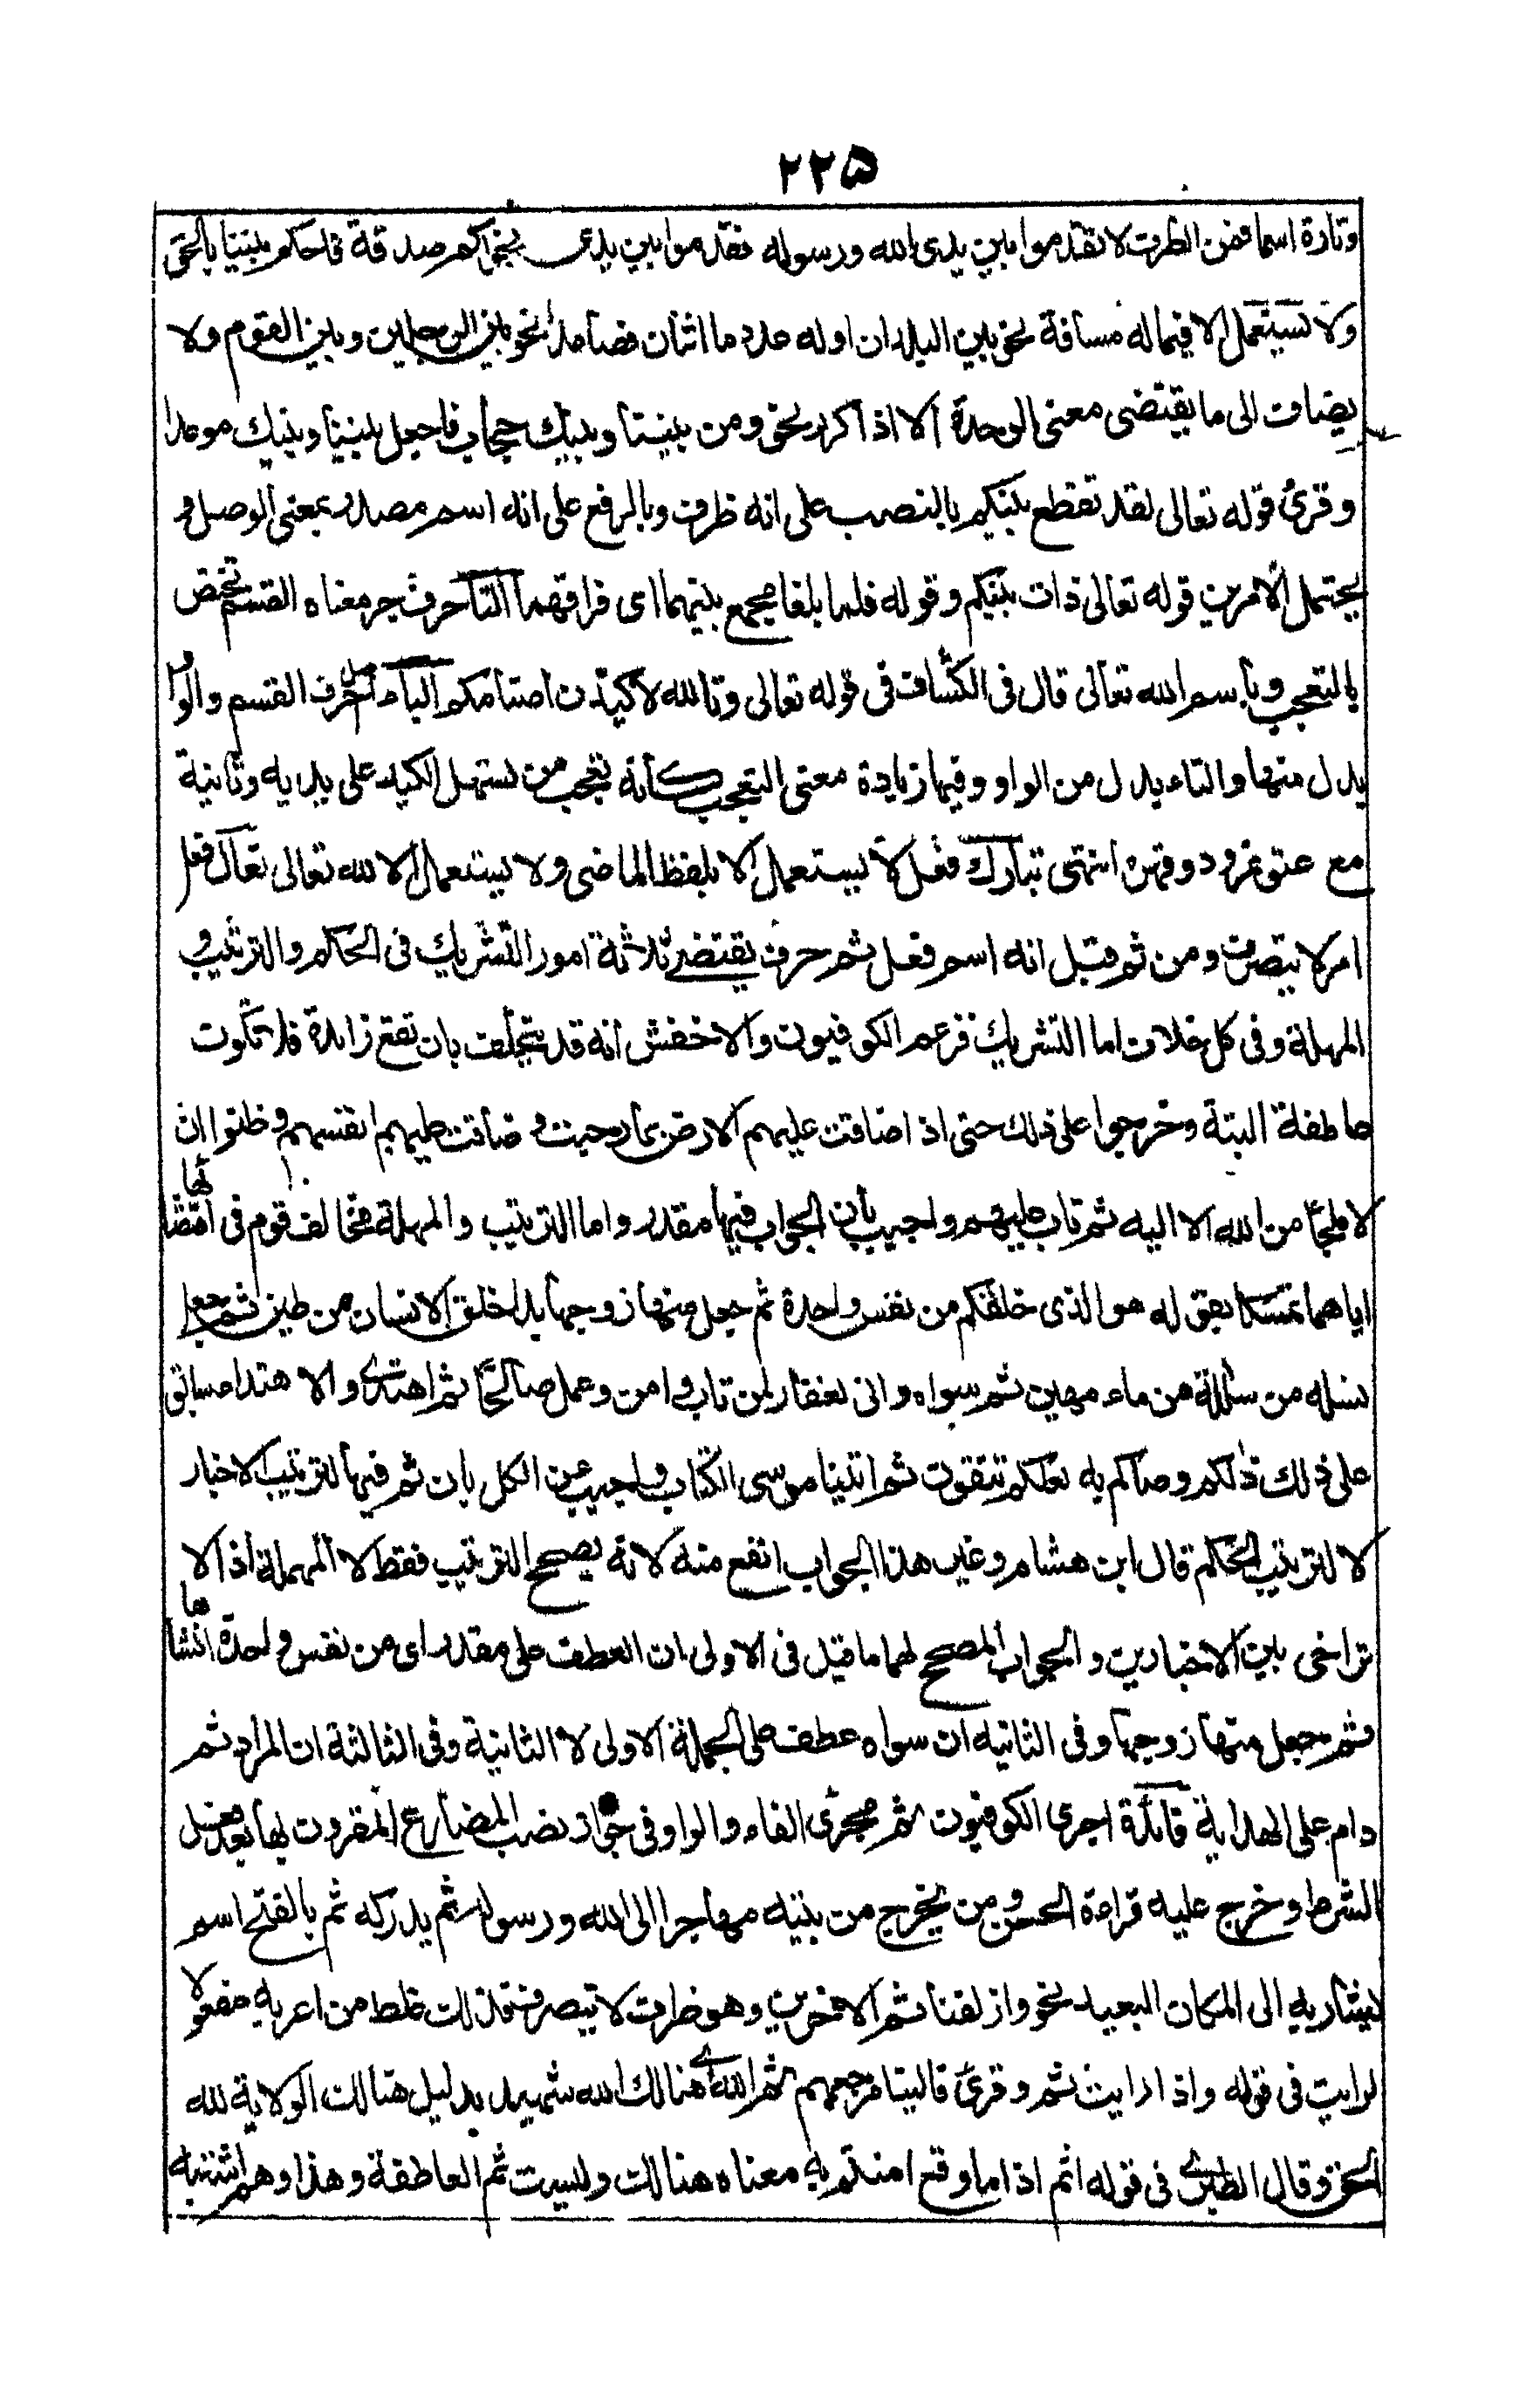 ٢٢٥
وتارة اسما فمن الظرف لا تقدموا بين يدى الله ورسوله فقدموا بين يدى نجواكم صدقة فاحكم بيننا بالحق
ولا تستعمل الا فيما له مسافة نحو بين البلدان او له عدد ما اثنان فصاعدا نحو بين الرجلين وبين القوم ولا
يضاف الى ما يقتضى معنى الوحدة الا اذا كرر نحو ومن بيننا وبينك حجاب فاجعل بيننا وبينك موعدا
وقرئ قوله تعالى لقد تقطع بينكم بالنصب على انه ظرف وبالرفع على انه اسم مصدر بمعنى الوصل و
يحتمل الامرين قوله تعالى ذات بينكم وقوله فلما بلغا مجمع بينهما اى فراقهما التاء حرف جر معناه القسم تختص
بالتعجب وباسم الله تعالى قال فى الكشاف فى قوله تعالى وتالله لاكيدن اصنامكم الباء اصل احرف القسم والواو
بدل منها والتاء بدل من الواو وفيها زيادة معنى التعجب كأنه تعجب من تسهل الكيد على يديه وتانية
مع عتو نمرود وقهره انتهى تبارك فعل لا يستعمل الا بلفظ الماضى ولا يستعمل الا لله تعالى تعال فعل
امر لا يتصرف ومن ثم قيل انه اسم فعل ثم حرف يقتضى ثلاثة امور التشريك فى الحكم والترتيب و
المهلة وفى كل خلاف اما التشريك فزعم الكوفيون والاخفش انه قد يتخلف بان تقع زايدة فلا تكون
عاطفة البتة وخرجوا على ذلك حتى اذا ضاقت عليهم الارض بما رحبت و ضاقت عليهم انفسهم وظنوا ان
لا ملجأ من الله الا اليه ثم تاب عليهم واجيب بأن الجواب فيها مقدر واما الترتيب والمهلة فخالف قوم فى اقتضائها
اياهما تمسكا بقوله هو الذى خلقكم من نفس واحدة ثم جعل منها زوجها بدا خلق الانسان من طين ثم جعل
نسله من سلالة من ماء مهين ثم سواه وانى لغفار لمن تاب و امن وعمل صالحا ثم اهتدى والاهتدا سابق
على ذلك ذلكم وصاكم به لعلكم تتقون ثم اتينا موسى الكتاب واجيب عن الكل بان ثم فيها لترتيب الاخبار
لا لترتيب الحكم قال ابن هشام وغير هذا الجواب انفع منه لانه يصحح الترتيب فقط لا المهملة اذ لا
تراخى بين الاخبارين والجواب المصحح لهما ما قيل فى الاولى ان العطف على مقدر اى من نفس واحدة انشاها
ثم جعل منها زوجها وفى الثانيه ان سواه عطف على الجملة الاولى لا الثانية وفى الثالثة ان المراد ثم
دام على الهداية فائدة اجرى الكوفيون ثم مجرى الفاء والواو فى جواز نصب المضارع المقرون بها بعد فعل
الشرط وخرج عليه قراءة الحسن ومن يخرج من بيته مهاجرا الى الله ورسوله ثم يدركه ثم بالفتح اسم
يشار به الى المكان البعيد نحو وازلفنا ثم الاخرين وهو ظرف لا يتصرف فلذلك غلط من اعربه مفعولا
لرايت فى قوله واذا رايت ثم وقرئ فالينا مرجعهم ثم الله اى هنالك الله شهيد بدليل هنالك الولاية لله
الحق وقال الطبرى فى قوله اثم اذا ما وقع امنتم به معناه هنالك وليست ثم العاطفة وهذا وهم اشتبه